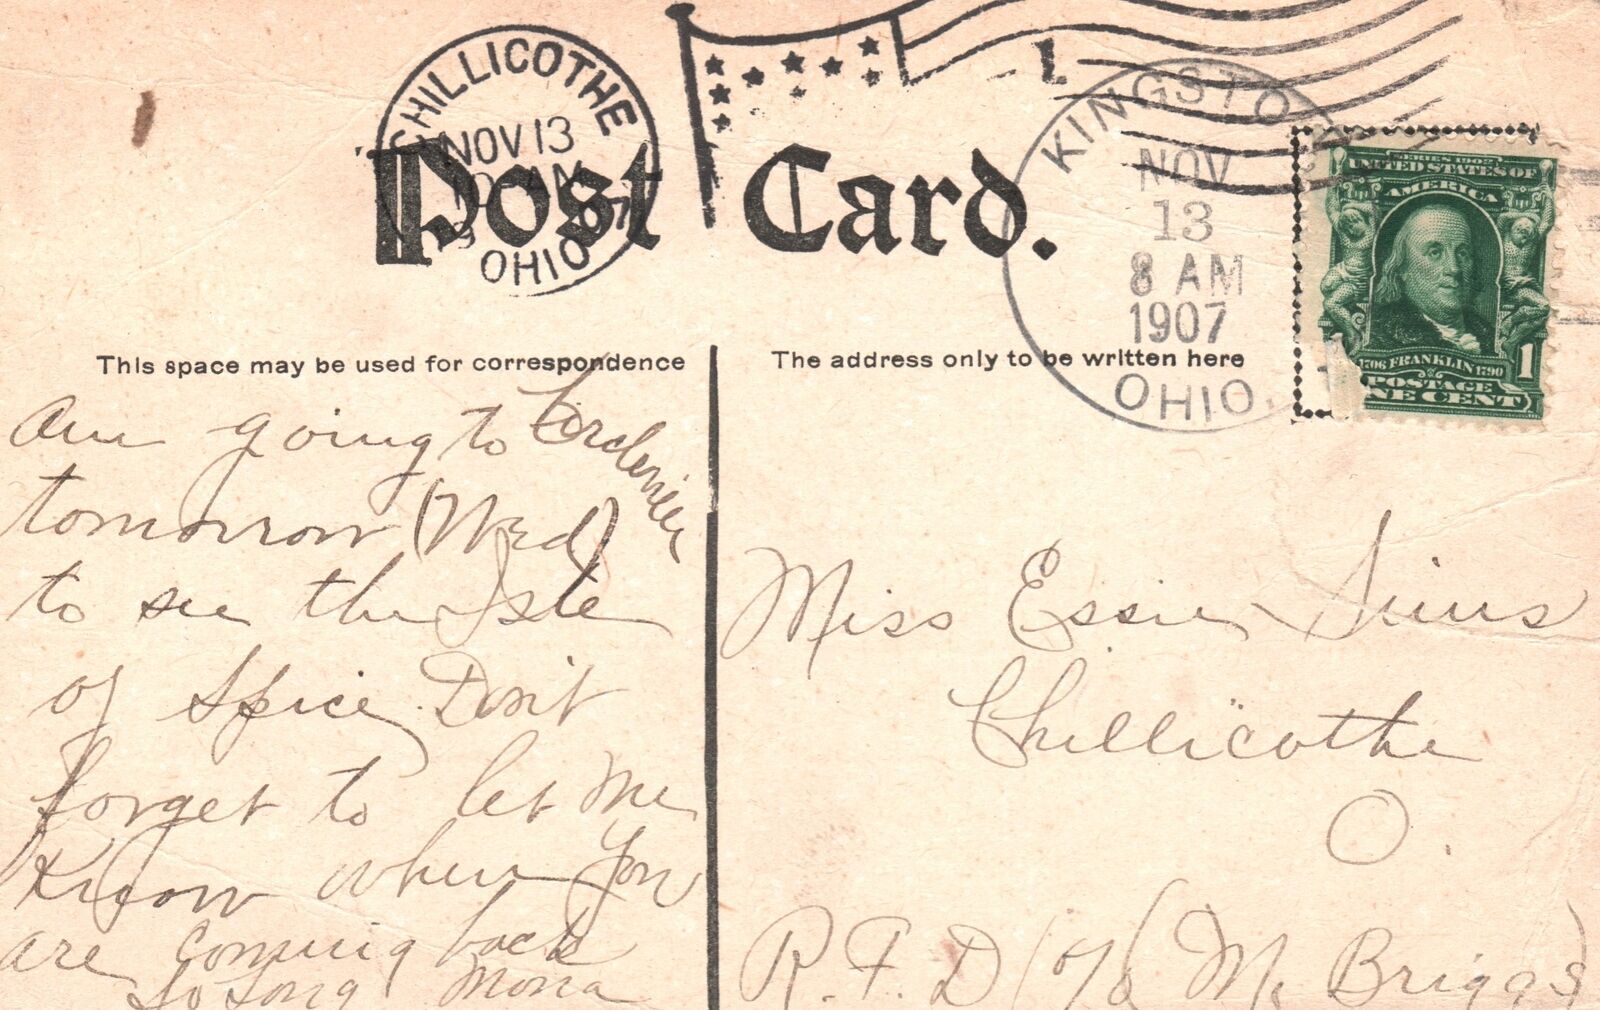 CHILLICOTHE
NOV 13
OHIO
KINGSTO
NOV
13
8 AM
1907
OHIO.
SERIES 1902
UNITED STATES OF
AMERICA
1706 FRANKLIN 1790
POSTAGE
NE CENT
1
Post Card.
This space may be used for correspondence
The address only to be written here
Am going to Circleville
tomorrow (Wed)
to see the Isle
of Spice. Don't
forget to let me
Know when you
are coming back
So Long Mona
Miss Essie Sims
Chillicothe
O.
R.F.D (c/o Mr Briggs)